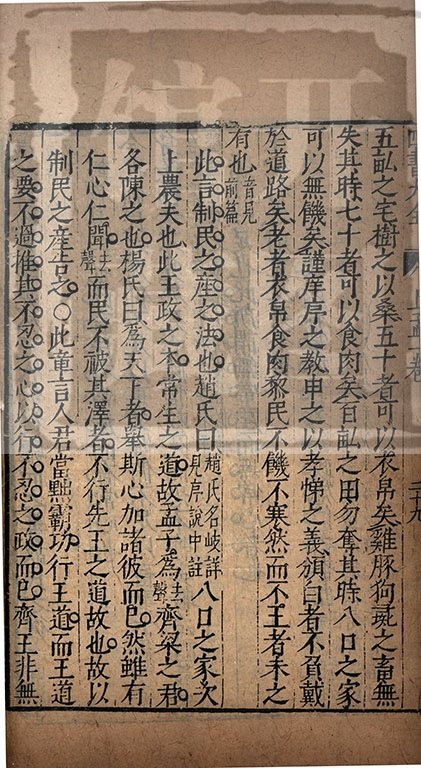 五畝之宅樹之以桑五十者可以衣帛矣雞豚狗彘之畜無
失其時七十者可以食肉矣百畝之田勿奪其時八口之家
可以無饑矣謹庠序之教申之以孝悌之義頒白者不負戴
於道路矣老者衣帛食肉黎民不饑不寒然而不王者未之
有也音見前篇
此言制民之產之法也趙氏曰趙氏名岐詳見序說中註八口之家次
上農夫也此王政之本常生之道故孟子為去聲齊梁之君
各陳之也楊氏曰為天下者舉斯心加諸彼而已然雖有
仁心仁聞去聲而民不被其澤者不行先王之道故也故以
制民之產告之○此章言人君當黜霸功行王道而王道
之要不過推其不忍之心以行不忍之政而已齊王非無